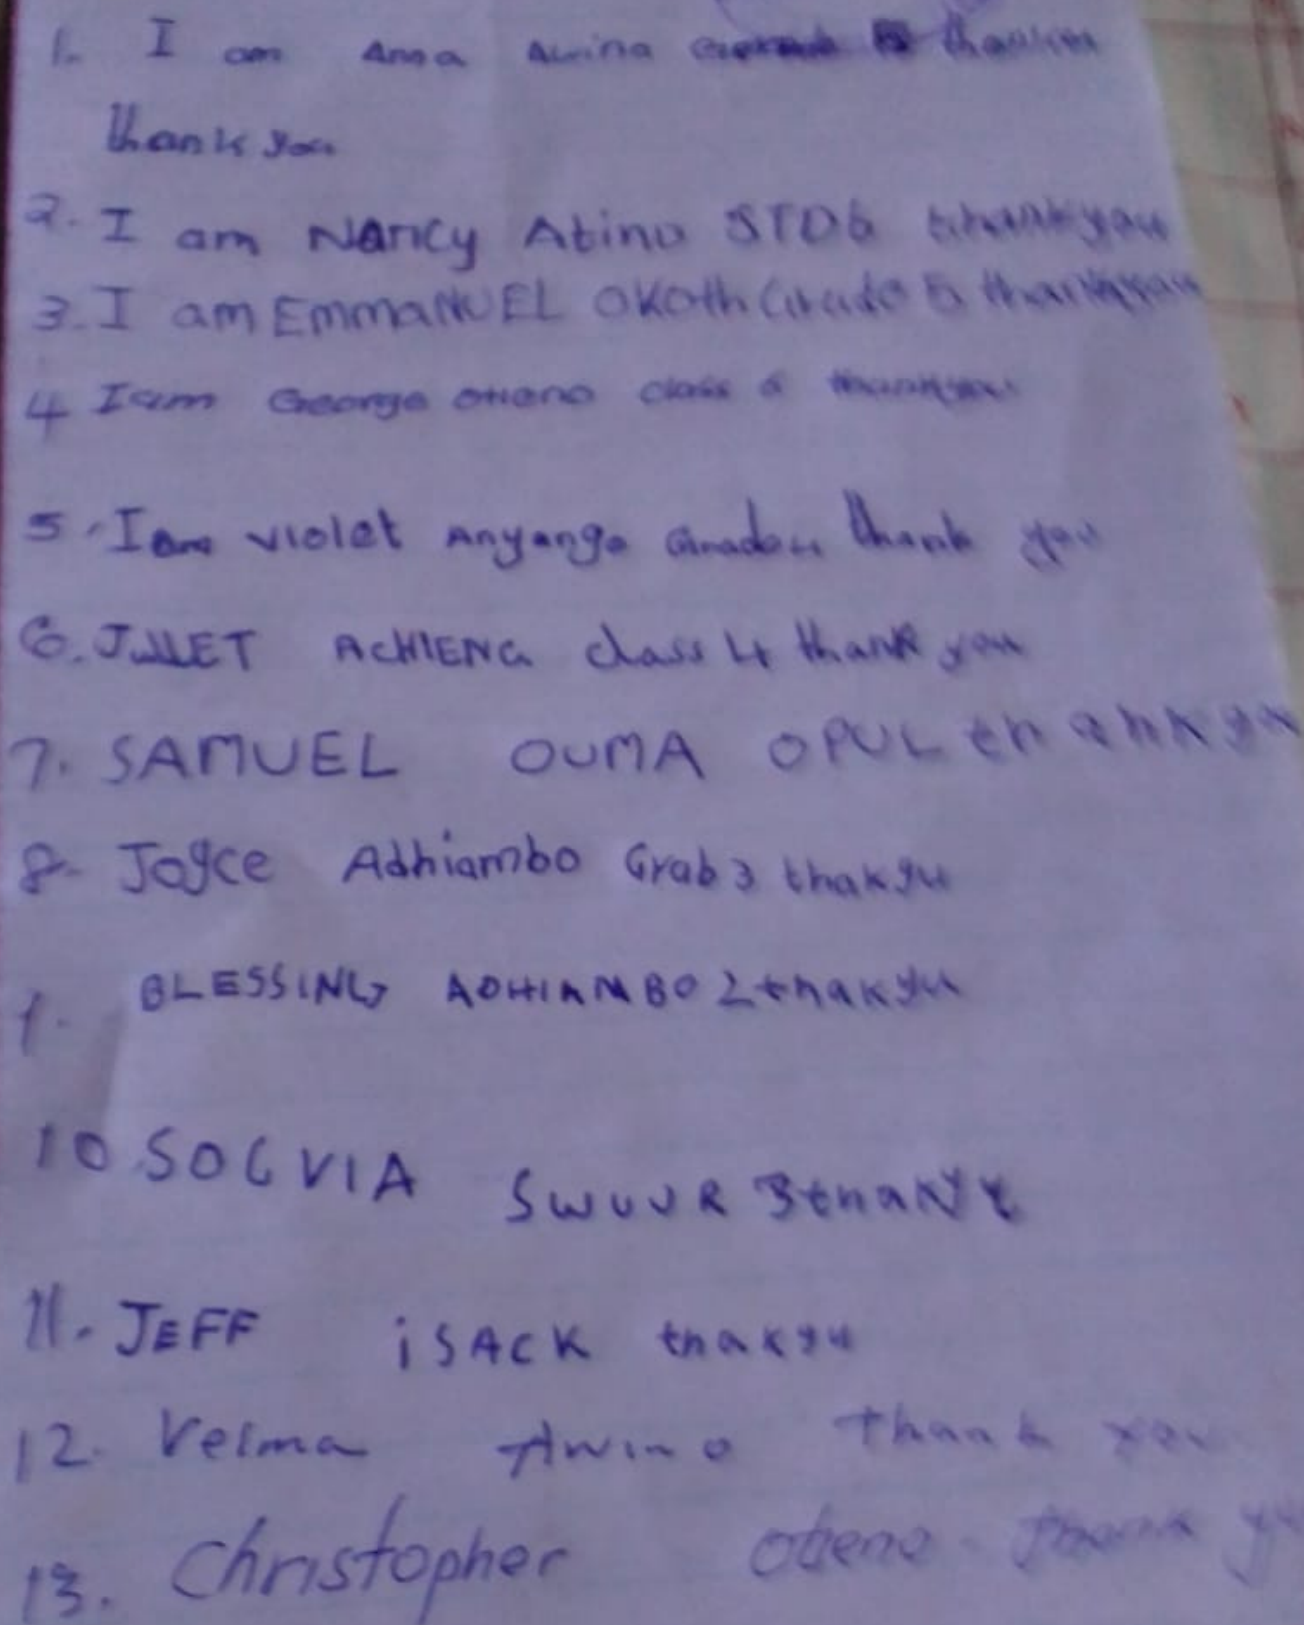 1. I am Anna Awino
thank you
2. I am NANCY Atino STD6 thank you
3. I am EmmaNUEL OKOth Grade 5 thank you
4 I am George otieno class 6 thank you
5. I am violet Anyango Grade 4 thank you
6. JULLET ACHIENG class 4 thank you
7. SAMUEL OUMA OPUL
8. Joyce Adhiambo Grab 3 thakyu
9. BLESSING ADHIAMBO 2 thakyu
10 SOGVIA
11. JEFF iSACK thakyu
12. Velma Awino thank you
13. Christopher otieno. Thank